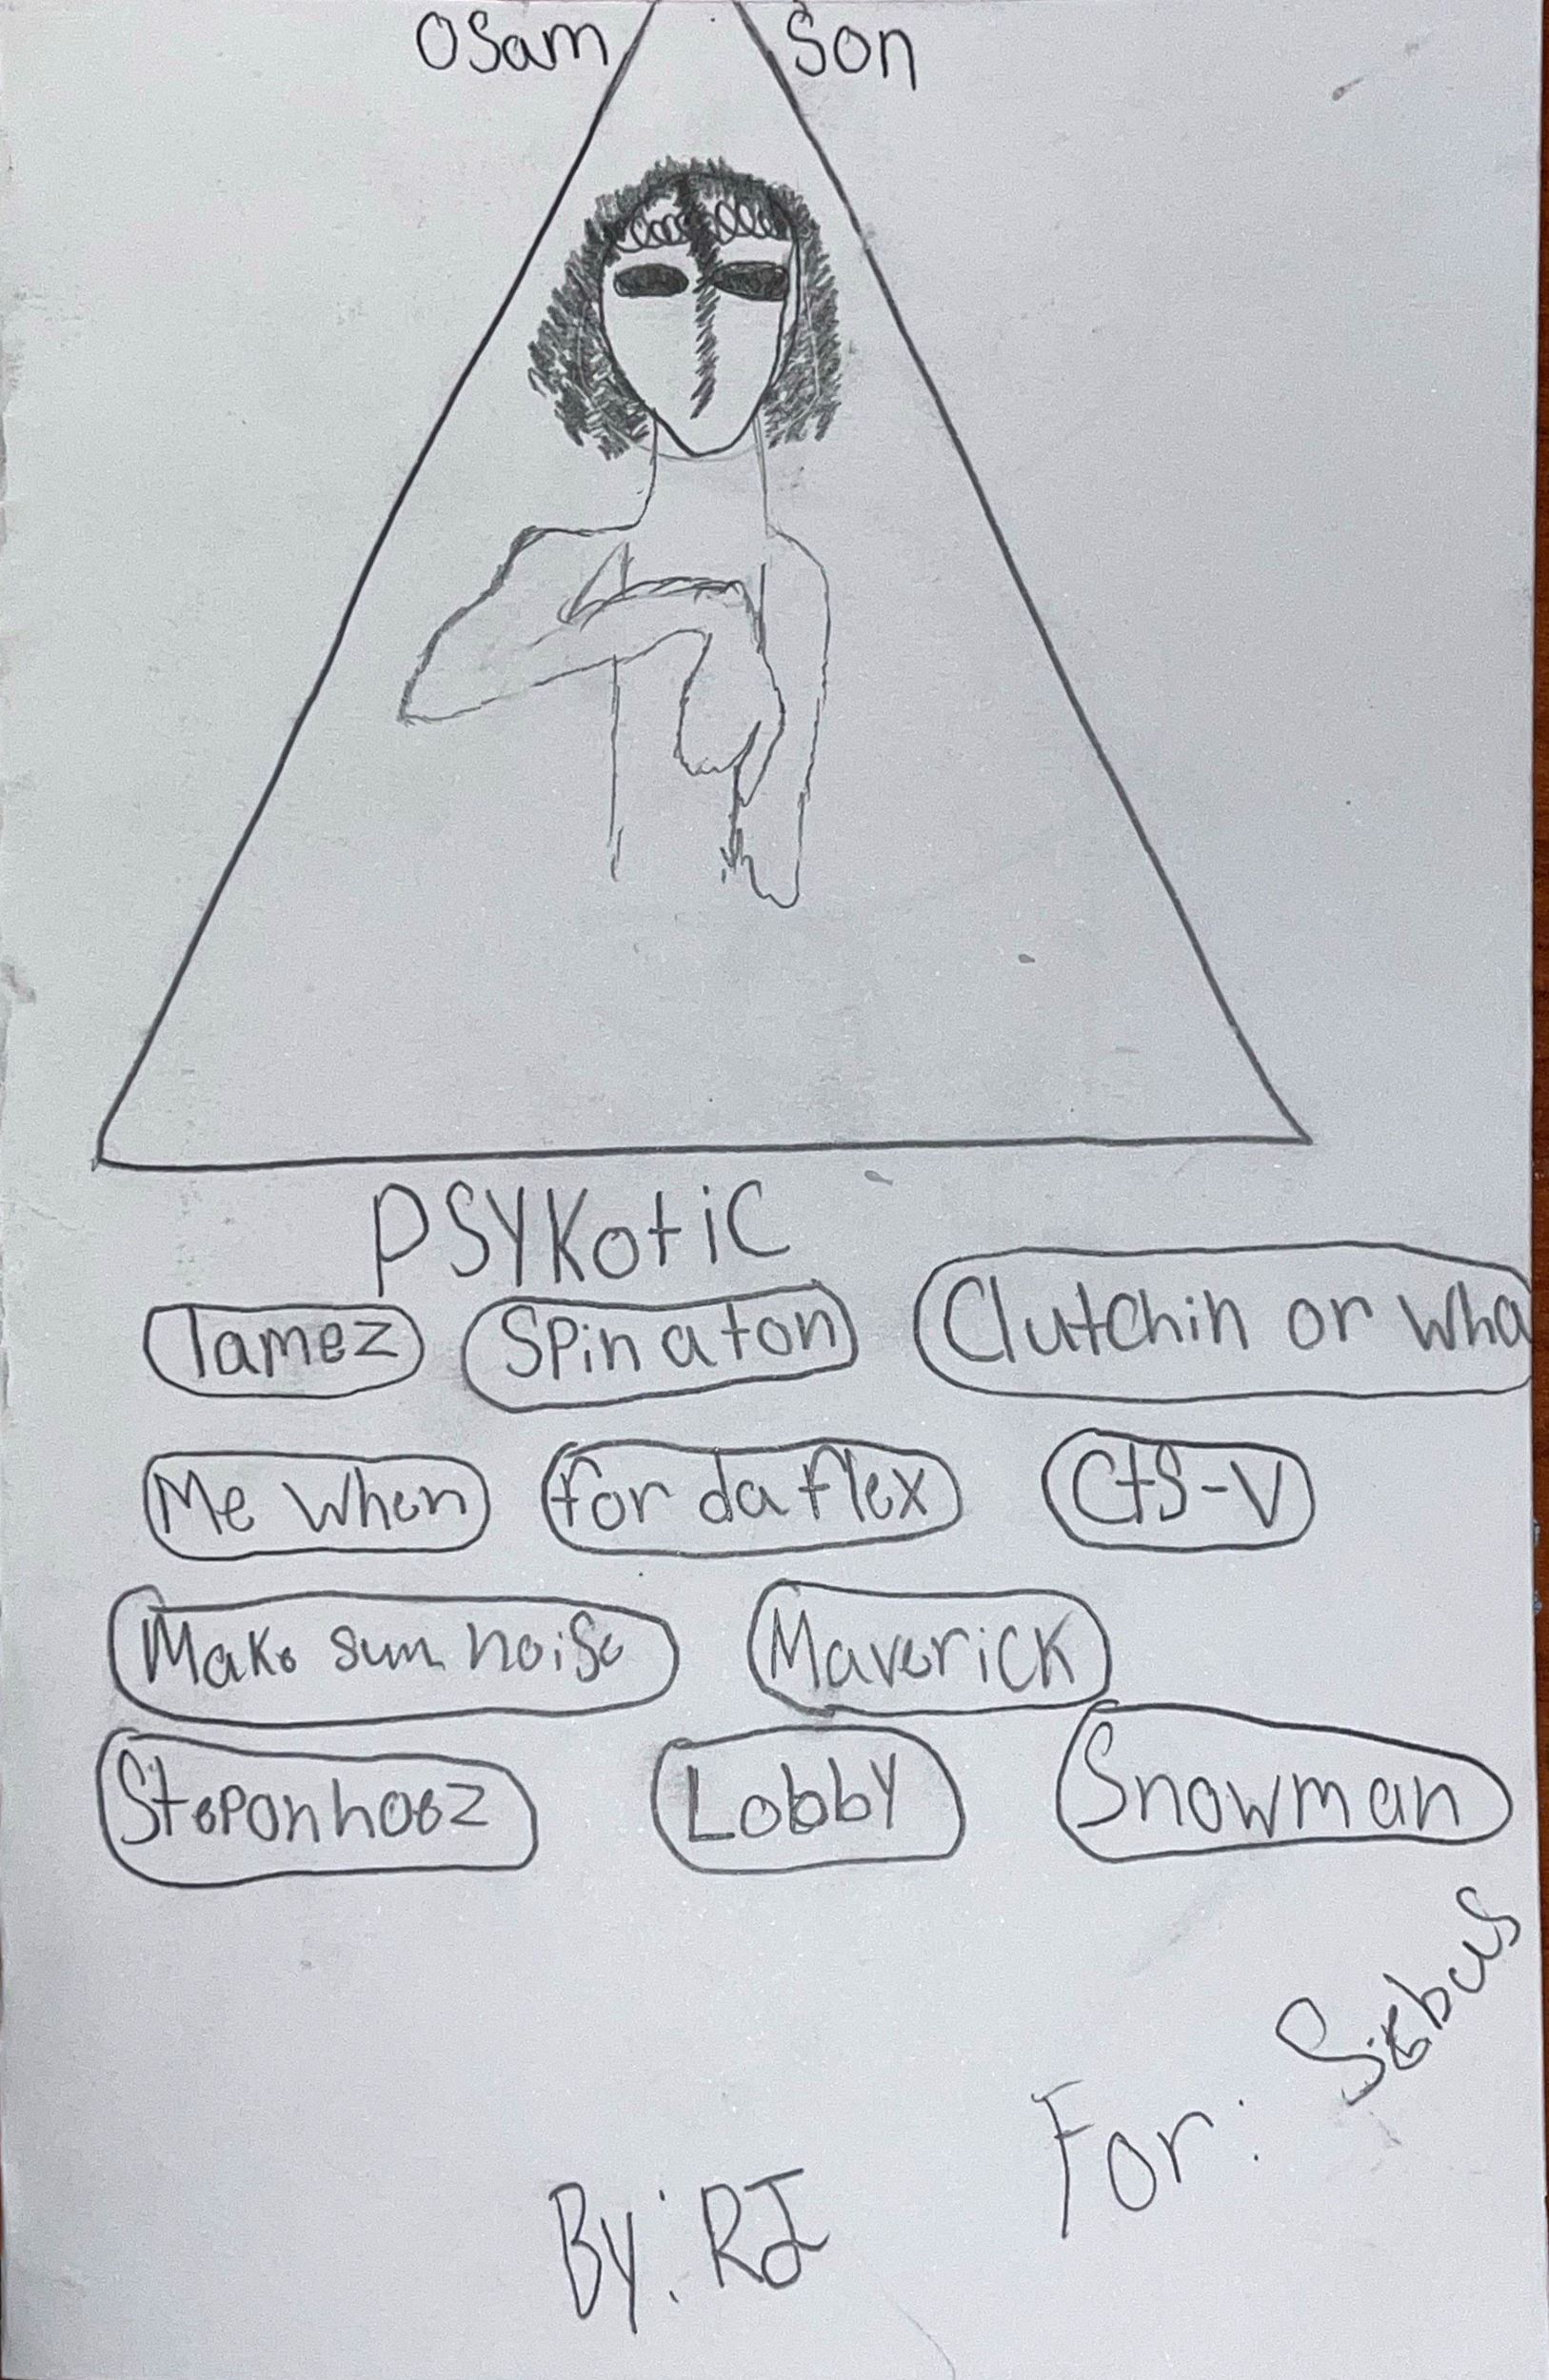 OSam Son
PSYKotic
Tamez Spin a ton Clutchin or wha
Me When for da flex CtS-V
Make sum noise Maverick
Steponhoez Lobby Snowman
For:
By: RJ